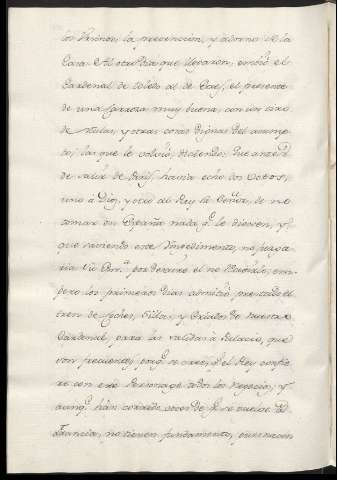 los Vecinos, la prevencion, y adorno de la
Casa. Al otro dia que llegaron, embió el
Cardenal de Toledo al de Etré, el presente
de una Carroza muy buena, con un tiro
de Mulas, y otras cosas dignas del asump-
to; las que le volvió, diciendo: Que antes
de salir de París, havia echo dos Votos,
uno á Dios, y otro al Rey su Señor, de no
tomar en España nada que le diesen, y
que haviendo este
ria Su Em.ª por no recivirle, em-
pero los primeros dias admitió prestado el
tren de Coches, Sillas, y Criados de nuestro
Cardenal, para las salidas á Palacio, que
son frequentes, porq.e se cree, q.e el Rey confie-
re con este Personage todos los negocios; y
aunq.e han corrido voces de q.e se vuelve á
Francia, no tienen fundamento, pues nacen